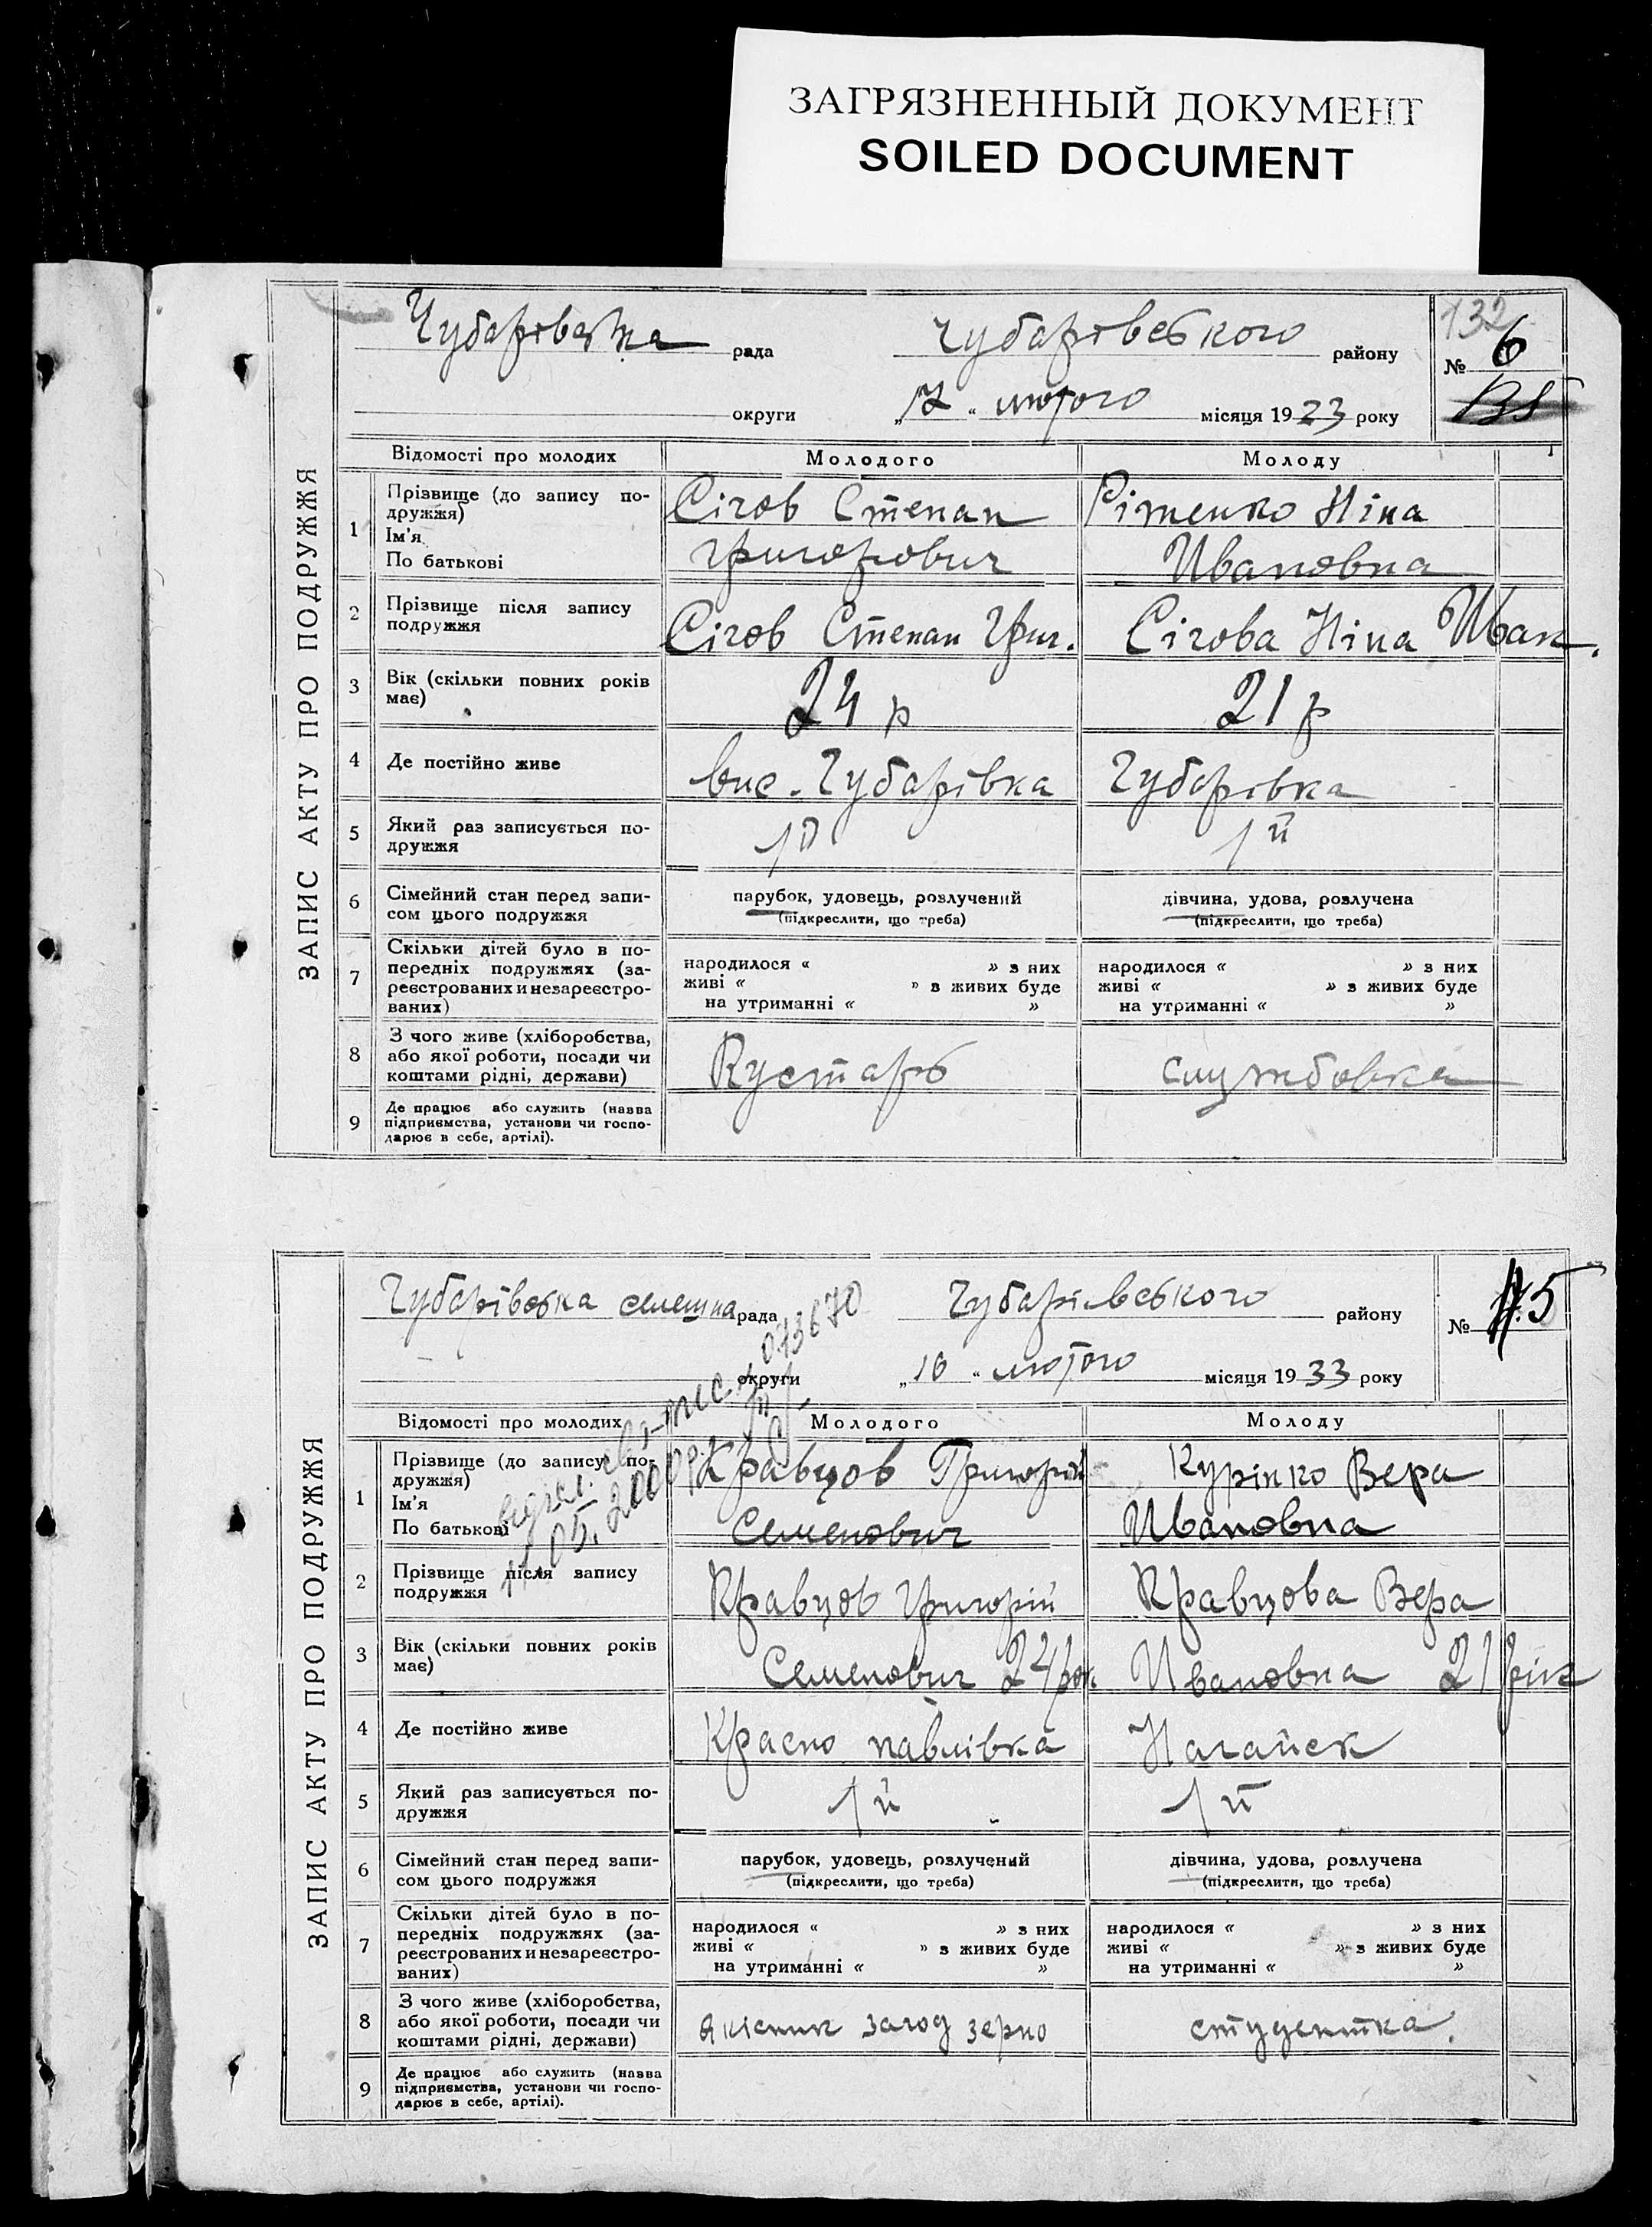 ЗАГРЯЗНЕННЫЙ ДОКУМЕНТ
SOILED DOCUMENT
ЗАПИС АКТУ ПРО ПОДРУЖЖЯ
132
Чубарівська рада Чубарівського району № 6
округи „ лютого місяця 1923 року
Відомості про молодих Молодого Молоду
1 Прізвище (до запису по-
дружжя)
Ім'я
По батькові
Сігов Степан
Григорович
Рітенко Ніна
Ивановна
2 Прізвище після запису
подружжя
Сігов Степан Григ. Сігова Ніна Иван.
3 Вік (скільки повних років
має)
24 р 21 р
4 Де постійно живе вис. Чубарівка Чубарівка
5 Який раз записується по-
дружжя
1й 1й
6 Сімейний стан перед запи-
сом цього подружжя
парубок, удовець, розлучений
(підкреслити, що треба)
дівчина, удова, розлучена
(підкреслити, що треба)
7 Скільки дітей було в по-
передніх подружжях (за-
реєстрованих и незареєстро-
ваних)
народилося « » з них
живі « » з живих буде
на утриманні « »
народилося « » з них
живі « » з живих буде
на утриманні « »
8 З чого живе (хліборобства,
або якої роботи, посади чи
коштами рідні, держави)
Кустарь службовка
9 Де працює або служить (назва
підприємства, установи чи госпо-
дарює в себе, артілі).
ЗАПИС АКТУ ПРО ПОДРУЖЖЯ
Чубарівська селешна рада Чубарівського району № 5
округи „16“ лютого місяця 1933 року
073670
05. 2000р.
Відомості про молодих Молодого Молоду
1 Прізвище (до запису по-
дружжя)
Ім'я
По батькові
Кравцов Григорій
Семенович
Курінко Вера
Ивановна
2 Прізвище після запису
подружжя
Кравцов Григорій Кравцова Вера
3 Вік (скільки повних років
має)
Семенович 24 рок. Ивановна 21 рік
4 Де постійно живе Красно павлівка Нагайск
5 Який раз записується по-
дружжя
1й 1й
6 Сімейний стан перед запи-
сом цього подружжя
парубок, удовець, розлучений
(підкреслити, що треба)
дівчина, удова, розлучена
(підкреслити, що треба)
7 Скільки дітей було в по-
передніх подружжях (за-
реєстрованих и незареєстро-
ваних)
народилося « » з них
живі « » з живих буде
на утриманні « »
народилося « » з них
живі « » з живих буде
на утриманні « »
8 З чого живе (хліборобства,
або якої роботи, посади чи
коштами рідні, держави)
якісник загод зерно студентка.
9 Де працює або служить (назва
підприємства, установи чи госпо-
дарює в себе, артілі).